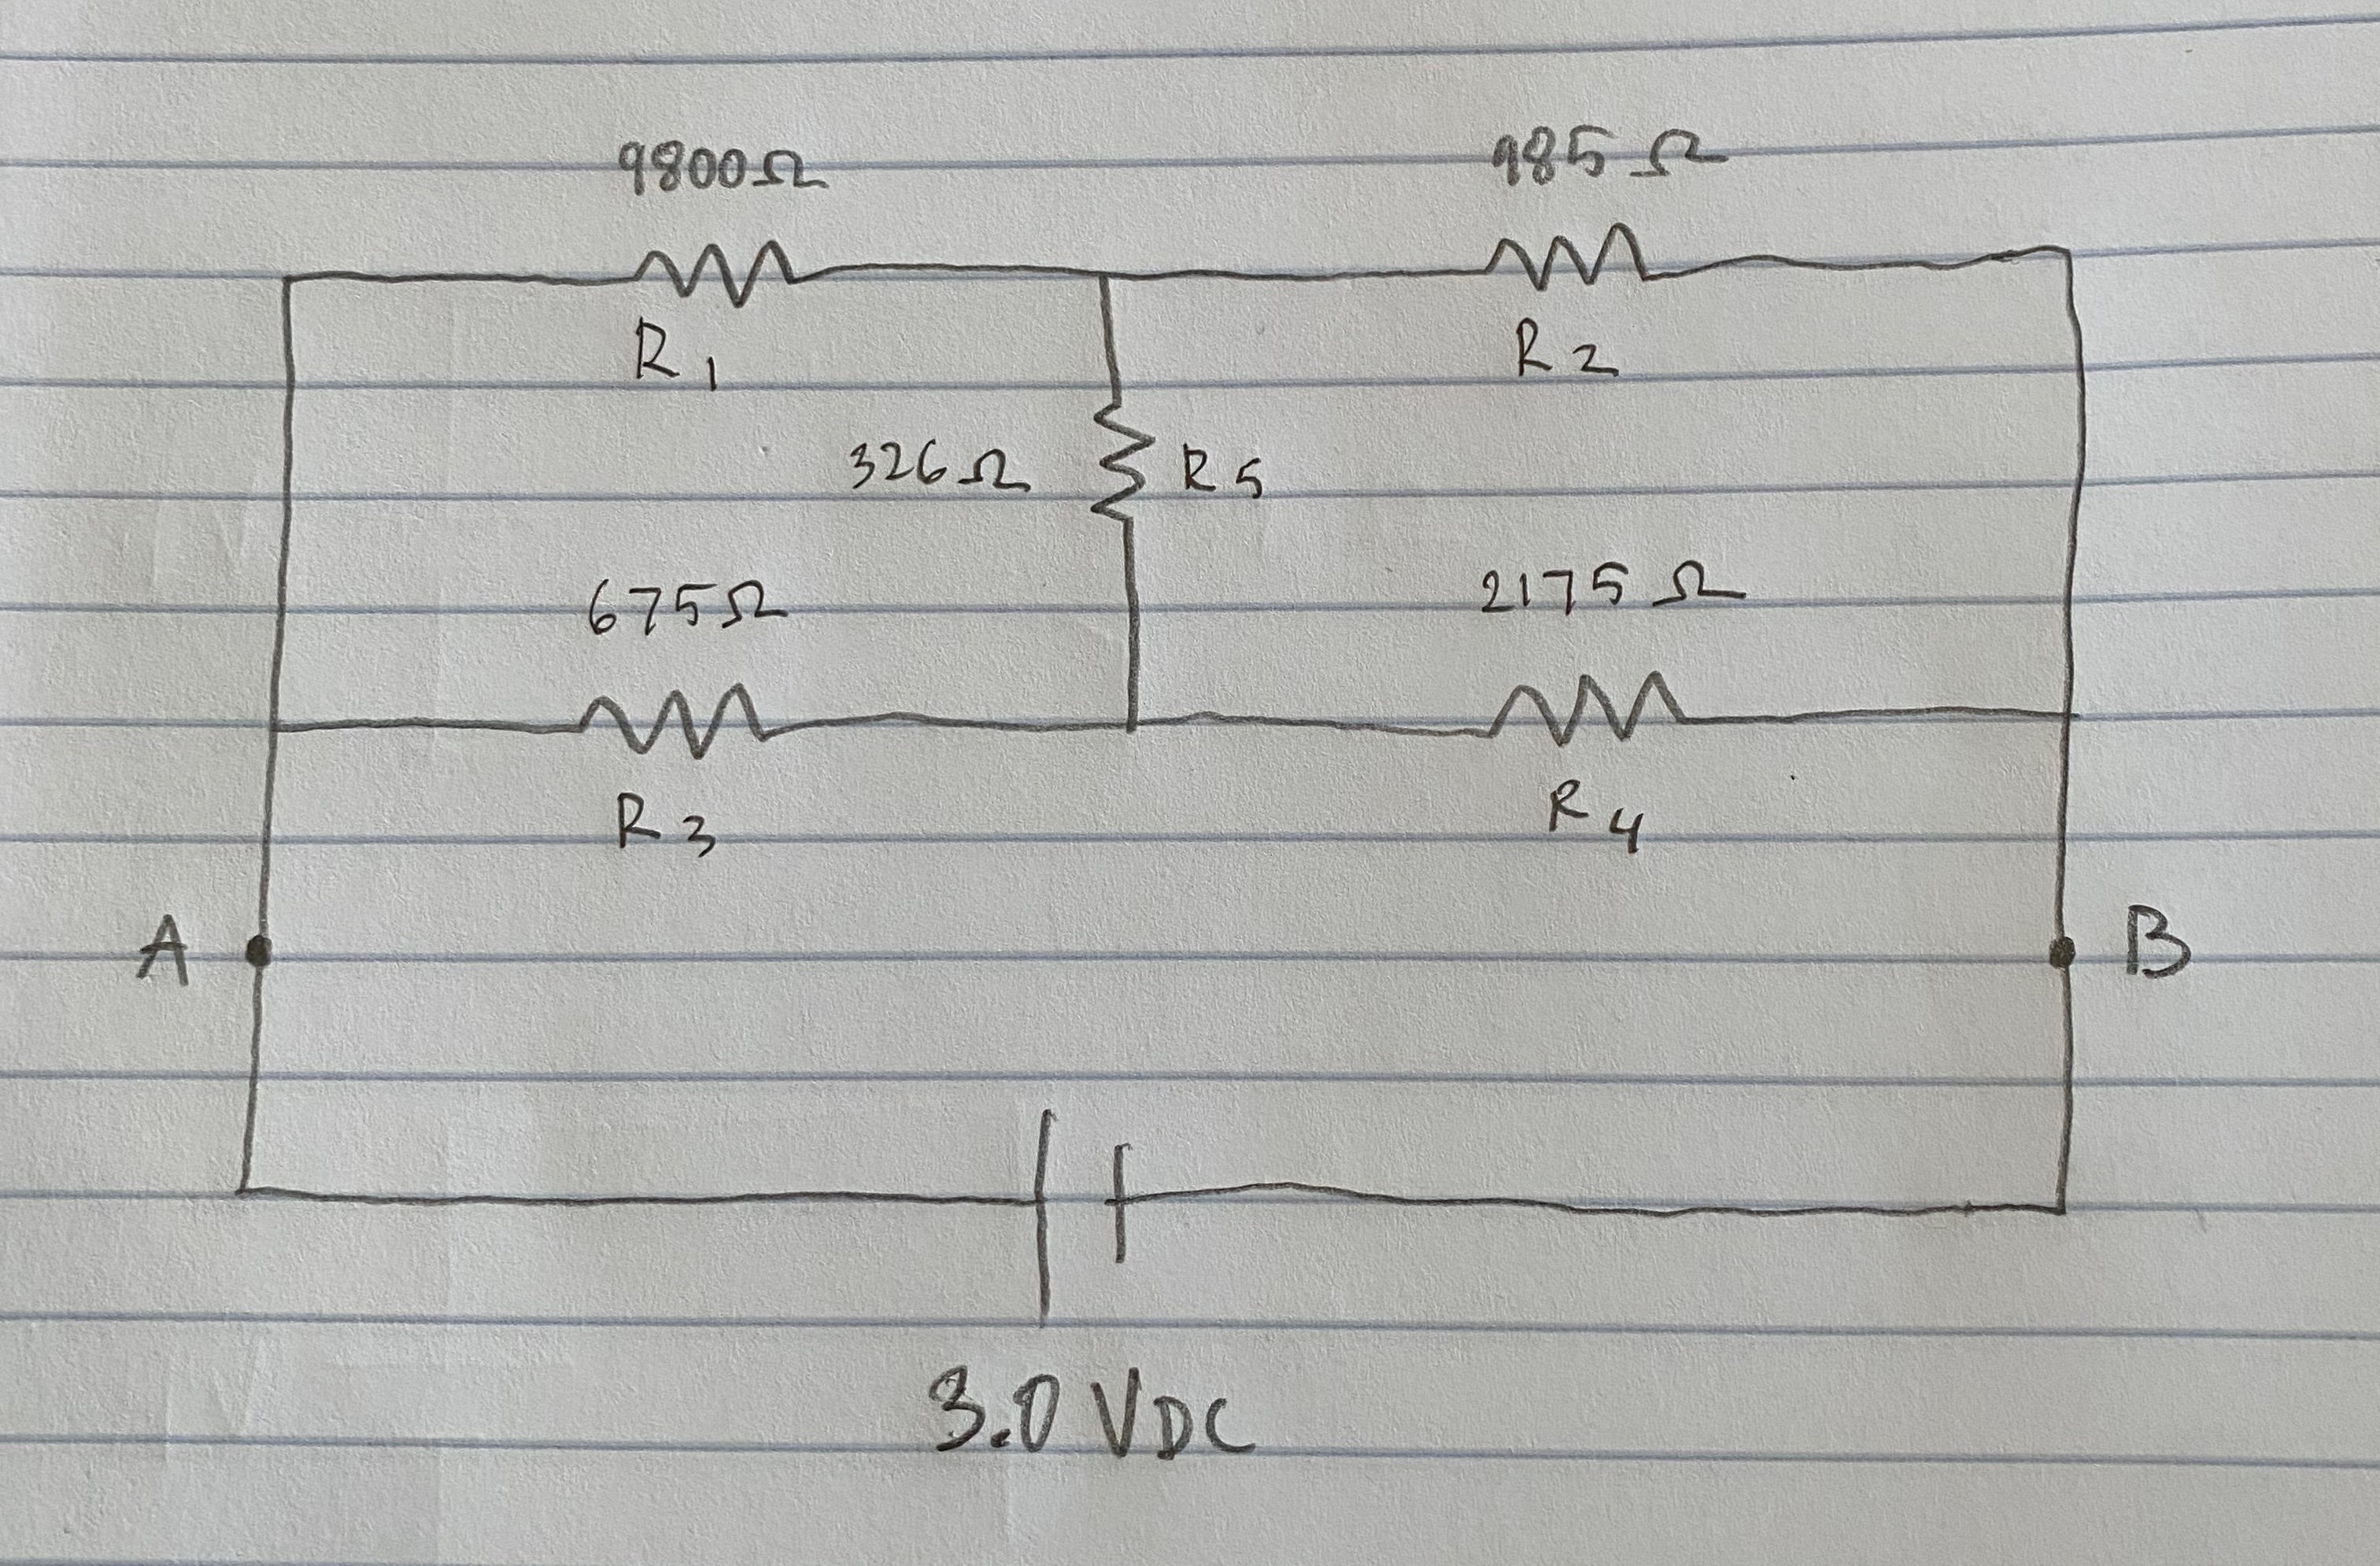 9800Ω
985Ω
R1
R2
326Ω
R5
675Ω
2175Ω
R3
R4
A
B
3.0 VDC